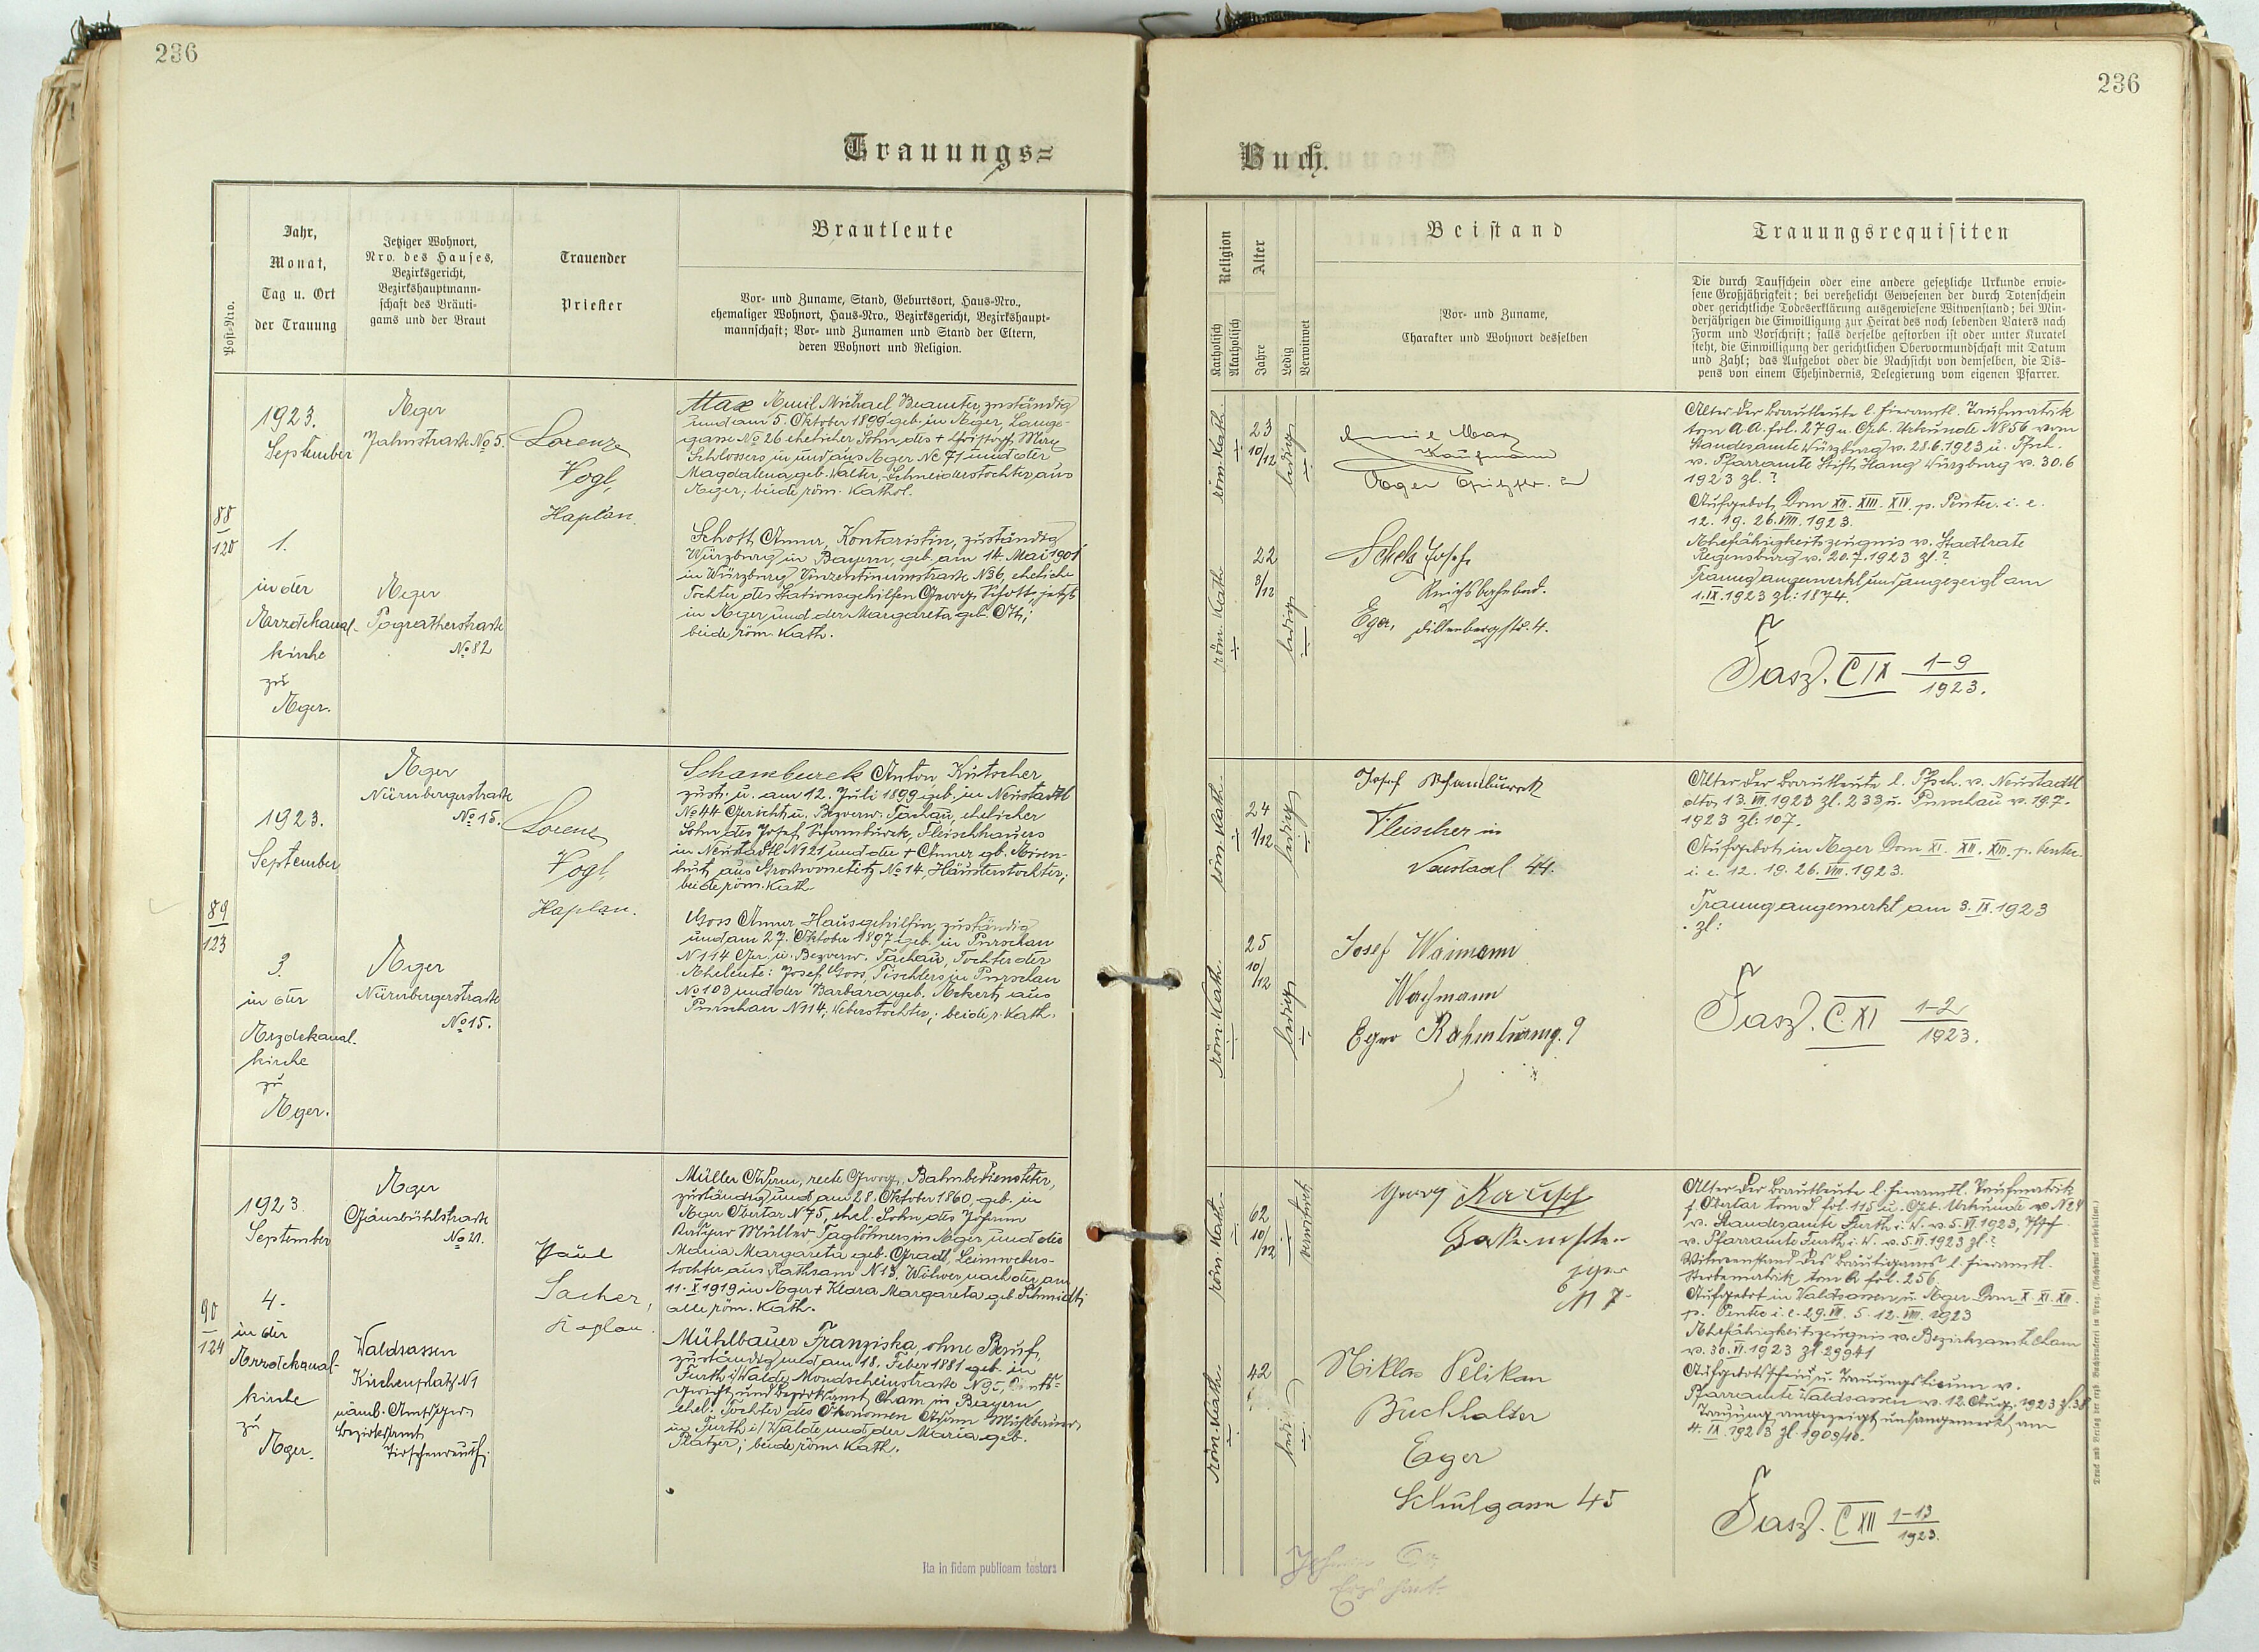 236
Trauungs=
Post-Nro.
Jahr,
Monat,
Tag u. Ort
der Trauung
Jetziger Wohnort,
Nro. des Hauses,
Bezirksgericht,
Bezirkshauptmann-
schaft des Bräuti-
gams und der Braut
Trauender
Priester
Brautleute
Vor- und Zuname, Stand, Geburtsort, Haus-Nro.,
ehemaliger Wohnort, Haus-Nro., Bezirksgericht, Bezirkshaupt-
mannschaft; Vor- und Zunamen und Stand der Eltern,
deren Wohnort und Religion.
88
120
1923.
September
1.
in der
Erzdekanal-
kirche
zu
Eger.
Eger
Jahnstraße No 5.
Eger
Pogratherstraße
No 82
Lorenz
Vogl,
Kaplan.
Max Emil Michael, Beamter, zuständig
und am 5. Oktober 1899 geb. in Eger, Lange-
gasse No 26 ehelicher Sohn des + Christoph
Schlossers in und aus Eger No 71 und der
Magdalena geb. Walter, Schneiderstochter aus
Eger; beide röm. Kathol.
Schott Anna, Kontoristin, zuständig
Würzburg in Bayern, geb. am 14. Mai 1901
in Würzburg, Vinzentinumstraße No 6, eheliche
Tochter des Stationsgehilfen Georg Schott, jetzt
in Eger und der Margareta geb. Ott;
beide röm. Kath.
89
123
1923.
September
3.
in der
Erzdekanal-
kirche
zu
Eger.
Eger
Nürnbergerstraße
No 15.
Eger
Nürnbergerstraße
No 15.
Lorenz
Vogl,
Kaplan.
Schamburek Anton, Kutscher,
zust. u. am 12. Juli 1899 geb. in Neustadtl
No 44 Gericht u. Bezverw. Tachau, ehelicher
Sohn des Josef Schamburek, Fleischhauers
in Neustadtl No 21 und der + Anna gb. Rosen-
aus Großwonetitz No 14, Häuslerstochter;
beide röm. Kath.
Goss Anna, Hausgehilfin, zuständig
und am 27. Oktober 1897 geb. in Purschau
No 114 Ger. u. Bezverw. Tachau, Tochter der
Eheleute: Josef Goss, Tischlers in Purschau
No 103 und der Barbara geb. Eckert, aus
Purschau No 114, Weberstochter; beide r. Kath.
90
124
1923.
September
4.
in der
Erzdekanal-
kirche
zu
Eger.
Eger
Gänsbühlstraße
No 21.
Waldsassen
Kirchenplatz No 1
Bezirksamt
Tirschenreuth
Paul
Sacher,
Kaplan.
Müller Adam, recte Georg, Bahnbediensteter,
zuständig und am 28. Oktober 1860 geb. in
Eger Obertor No 75, ehel. Sohn des Johann
Müller, Taglöhners in Eger und der
Maria Margareta geb. Gradl, Leinwebers-
tochter aus Rathsam No 13, Witwer nach der am
11. X. 1919 in Eger + Klara Margareta geb. Schmidt;
alle röm. Kath.
Mühlbauer Franziska, ohne Beruf,
zuständig und am 18. Feber 1881 geb. in
Furth i/Walde, Mondscheinstraße No 95, Amts-
gericht und Bezirksamt Cham in Bayern
ehel. Tochter des Ökonomen Adam Mühlbauer
in Furth i/Walde und der Maria geb.
Platzer; beide röm. Kath.
Ita in fidem publicam testors
236
Buch.
Religion
Katholisch
Akatholisch
Alter
Jahre
Ledig
Verwitwet
Beistand
Vor- und Zuname,
Charakter und Wohnort desselben
Trauungsrequisiten
Die durch Taufschein oder eine andere gesetzliche Urkunde erwie-
sene Großjährigkeit; bei verehelicht Gewesenen der durch Totenschein
oder gerichtliche Todeserklärung ausgewiesene Witwenstand; bei Min-
derjährigen die Einwilligung zur Heirat des noch lebenden Vaters nach
Form und Vorschrift; falls derselbe gestorben ist oder unter Kuratel
steht, die Einwilligung der gerichtlichen Obervormundschaft mit Datum
und Zahl; das Aufgebot oder die Nachsicht von demselben, die Dis-
pens von einem Ehehindernis, Delegierung vom eigenen Pfarrer.
röm. Kath.
23
10/12
ledig
Kaufmann
Eger
röm. Kath
22
3/12
ledig
Josef
Eger, Dillenbergstr. 4.
Alter der Brautleute l. hieramtl. Taufmatrik
tom AA. fol. 279 u. Geb. Urkunde No 856 vom
Standesamte Würzburg v. 28.6.1923 u. Tfsch.
v. Pfarramte Stift Haug Würzburg v. 30.6
1923 zl. ?
Aufgebot, Dom XII. XIII. XIV. p. Pentec. i. e.
12. 19. 26. VIII. 1923.
Ehefähigkeitszeugnis v. Stadtrate
Regensburg v. 20.7.1923 zl. ?
Trauung angemerkt und angezeigt am
1. IX. 1923 zl: 1874.
Fasz. C IX 1-9
1923.
röm. Kath.
24
1/12
ledig
Josef Schamburek
Fleischer in
Neustadl 44.
röm. Kath.
25
10/12
ledig
Josef Waimann
Wachmann
Eger
Alter der Brautleute l. Tfsch. v. Neustadtl
dto 13. VII. 1923 zl. 233 u. Purschau v. 19.7.
1923 zl: 107.
Aufgebot in Eger Dom XI. XII. XIII. p. Pentec.
i. e. 12. 19. 26. VIII. 1923.
Trauung angemerkt am 3. IX. 1923
zl:
Fasz. C. XI 1-2
1923.
röm. Kath.
62
10/12
verwitwet
Georg
Eger
No 7
röm. Kath.
42
ledig
Niklas Pelikan
Buchhalter
Eger
Schulgasse 45
Alter der Brautleute l. hieramtl. Taufmatrik
f. Obertor tom S. fol. 115 u. Geb. Urkunde v. No 24
v. Standesamte Furth i. W. v. 5. VI. 1923, Tfsch
v. Pfarramte Furth i. W. v. 5. VI. 1923 zl. ?
Witwenstand des Bräutigams l. hieramtl.
Sterbematrik tom R fol. 256.
Aufgebot in Waldsassen u. Eger Dom X. XI. XII.
p. Pentec i. e. 29. VII. 5. 12. VIII. 1923
Ehefähigkeitszeugnis v. Bezirksamt Cham
v. 30. VI. 1923 zl 29941
Aufgebotsschein u. Trauungslizenz v.
Pfarramte Waldsassen v. 12. Aug. 1923 zl. 38
Trauung angezeigt und angemerkt am
4. IX. 1923 zl. 1909/10.
Fasz. C XII 1-13
1923.
Druck und Verlag der erzb. Buchdruckerei in Prag. (Nachdruck vorbehalten.)